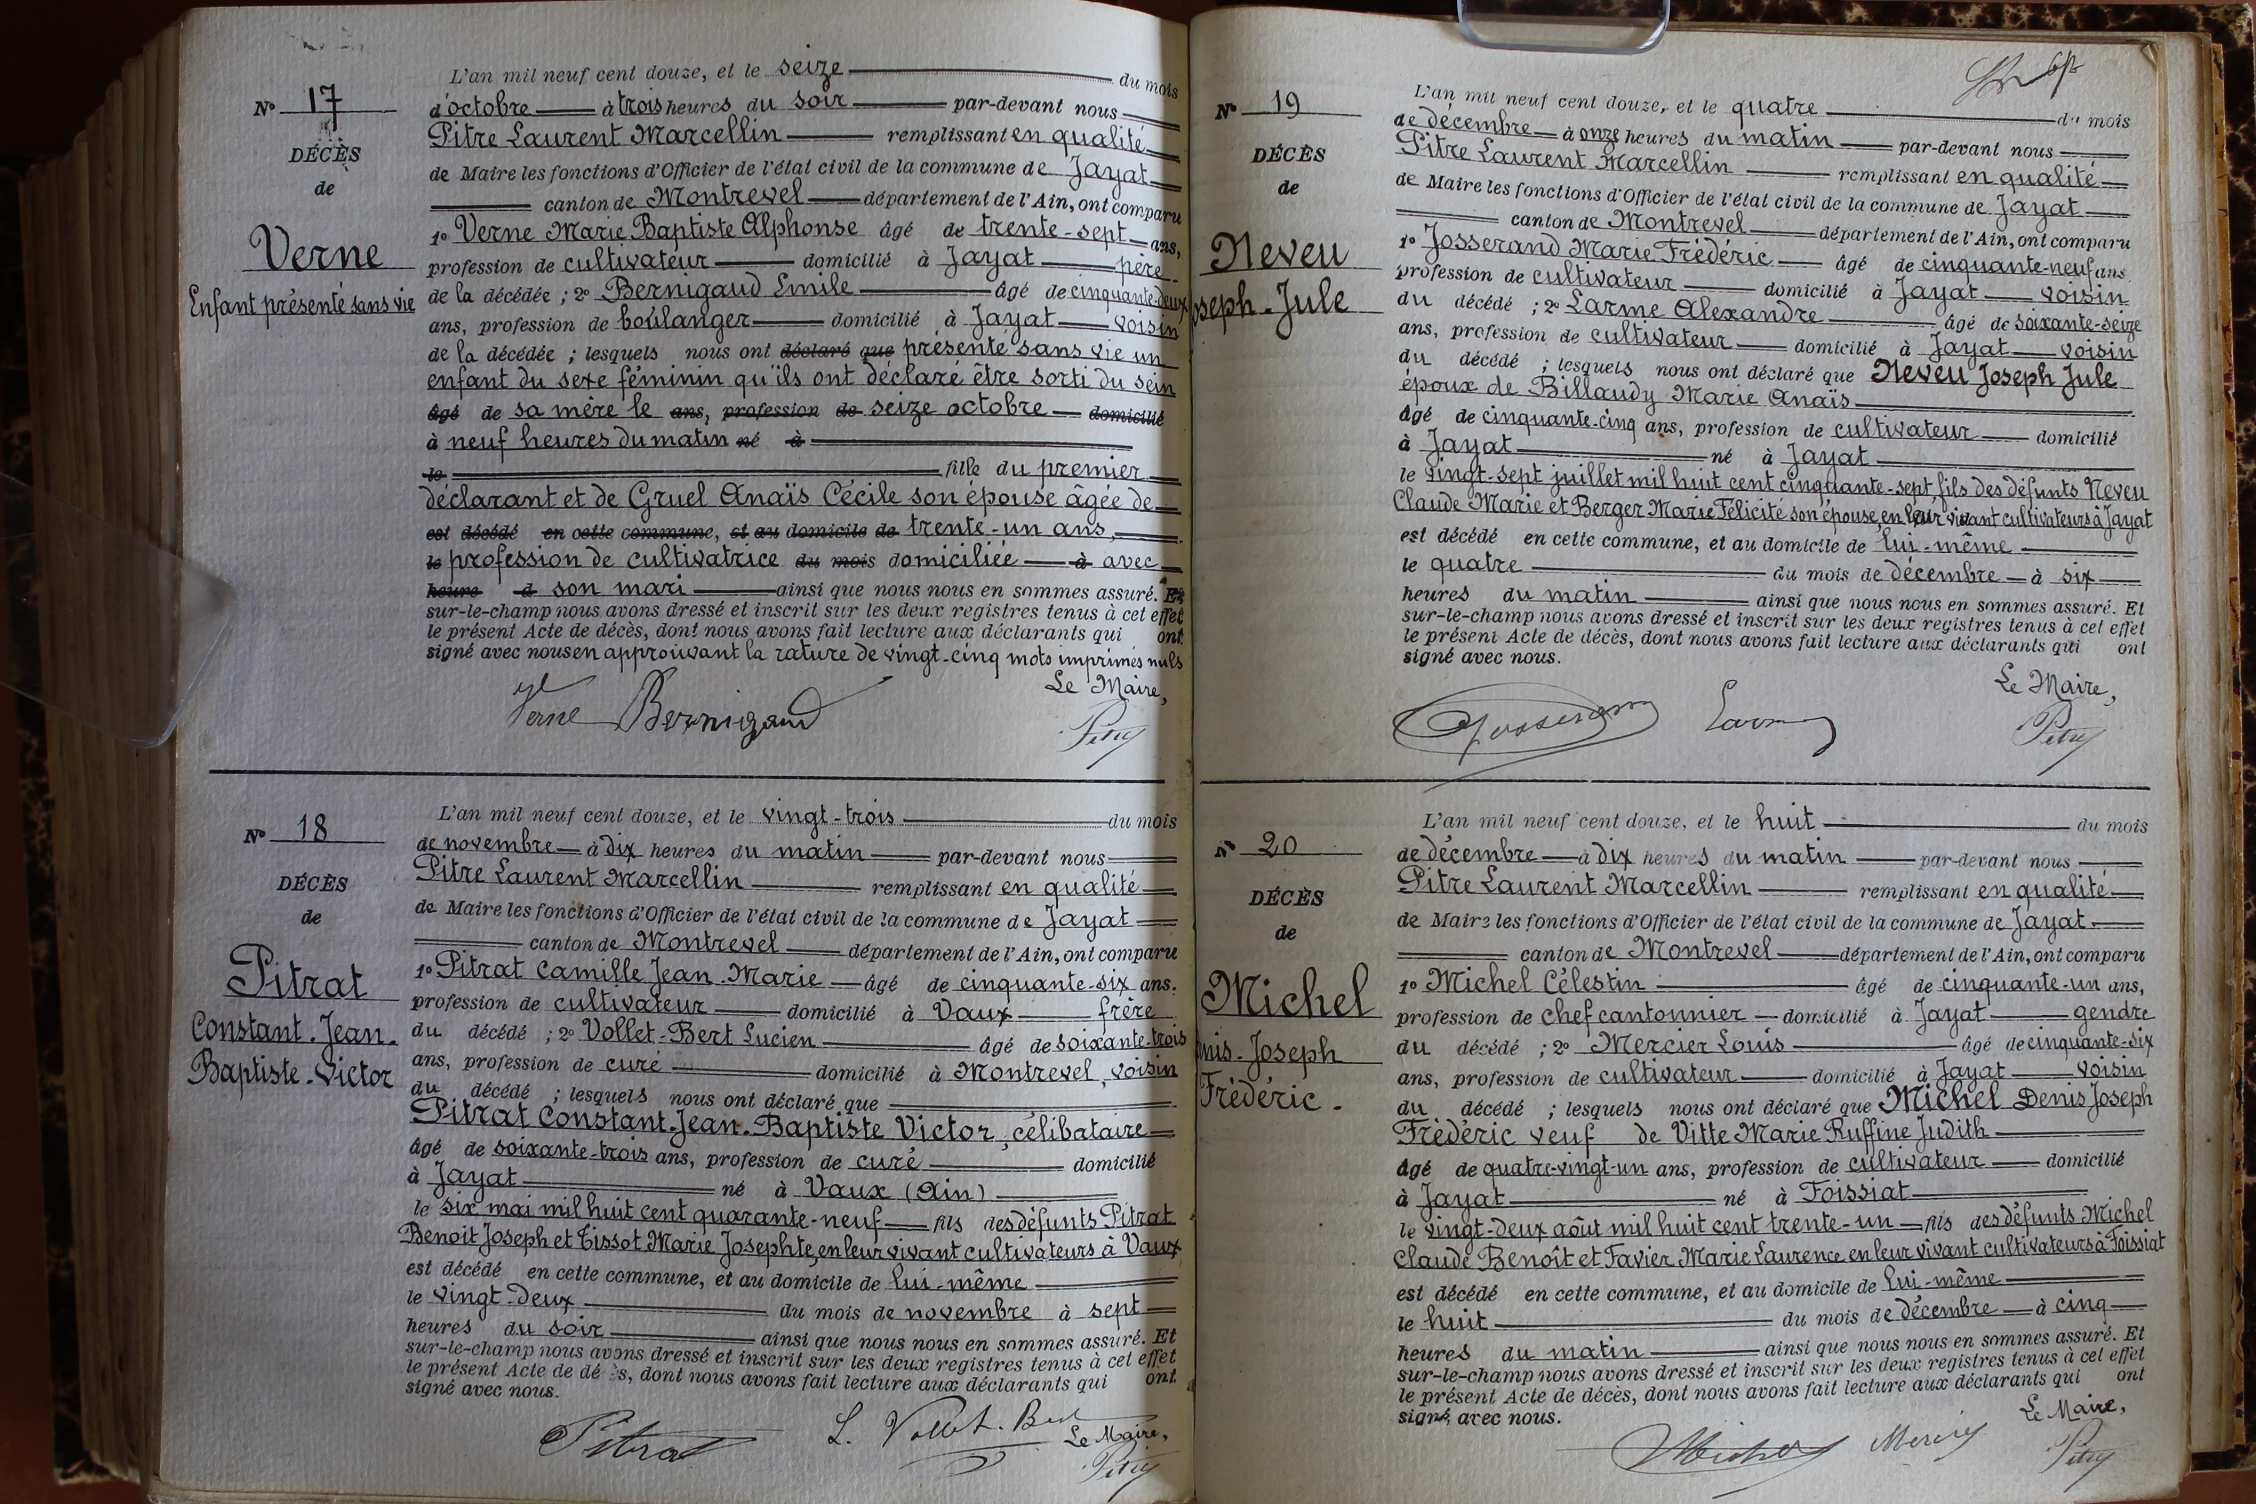 L'an mil neuf cent douze, et le seize du mois
N° 17
d'octobre à trois heures du soir par-devant nous
Pitre Laurent Marcellin remplissant en qualité
DÉCÈS
de Maire les fonctions d'Officier de l'état civil de la commune de Jayat
de
canton de Montrevel département de l'Ain, ont comparu
1° Verne Marie Baptiste Alphonse âgé de trente-sept ans,
Verne
profession de cultivateur domicilié à Jayat père
Enfant présenté sans vie
de la décédée ; 2° Bernigaud Emile âgé de cinquante-deux
ans, profession de boulanger domicilié à Jayat voisin
de la décédée ; lesquels nous ont déclaré que présenté sans vie un
enfant du sexe féminin qu'ils ont déclaré être sorti du sein
âgé de sa mère le ans, profession de seize octobre domicilié
à neuf heures du matin né à
le fille du premier
déclarant et de Gruel Anaïs Cécile son épouse âgée de
est décédé en cette commune, et au domicile de trente-un ans,
le profession de cultivatrice du mois domiciliée à avec
heure d son mari ainsi que nous nous en sommes assuré. Et
sur-le-champ nous avons dressé et inscrit sur les deux registres tenus à cet effet
le présent Acte de décès, dont nous avons fait lecture aux déclarants qui ont
signé avec nous en approuvant la rature de vingt-cinq mots imprimés nuls
Le Maire,
Verne Bernigaud Pitre
L'an mil neuf cent douze, et le vingt-trois du mois
N° 18
de novembre à dix heures du matin par-devant nous
Pitre Laurent Marcellin remplissant en qualité
DÉCÈS
de Maire les fonctions d'Officier de l'état civil de la commune de Jayat
de
canton de Montrevel département de l'Ain, ont comparu
1° Pitrat Camille Jean-Marie âgé de cinquante-six ans.
Pitrat
profession de cultivateur domicilié à Vaux frère
Constant-Jean-
du décédé ; 2° Vollet-Bert Lucien âgé de soixante-trois
Baptiste-Victor
ans, profession de curé domicilié à Montrevel, voisin
du décédé ; lesquels nous ont déclaré que
Pitrat Constant-Jean-Baptiste Victor, célibataire
âgé de soixante-trois ans, profession de curé domicilié
à Jayat né à Vaux (Ain)
le six mai mil huit cent quarante-neuf fils des défunts Pitrat
Benoit Joseph et Tissot Marie Josephte, en leur vivant cultivateurs à Vaux
est décédé en cette commune, et au domicile de lui-même
le vingt-deux du mois de novembre à sept
heures du soir ainsi que nous nous en sommes assuré. Et
sur-le-champ nous avons dressé et inscrit sur les deux registres tenus à cet effet
le présent Acte de dé ès, dont nous avons fait lecture aux déclarants qui ont
signé avec nous.
Pitrat L. Vollet-Bert
Le Maire,
Pitre
L'an mil neuf cent douze, et le quatre du mois
N° 19
de décembre à onze heures du matin par-devant nous
Pitre Laurent Marcellin remplissant en qualité
DÉCÈS
de Maire les fonctions d'Officier de l'état civil de la commune de Jayat
de
canton de Montrevel département de l'Ain, ont comparu
1° Josserand Marie Frédéric âgé de cinquante-neuf ans
Neveu
profession de cultivateur domicilié à Jayat voisin
oseph-Jule
du décédé ; 2° Larme Alexandre âgé de soixante-seize
ans, profession de cultivateur domicilié à Jayat voisin
du décédé ; lesquels nous ont déclaré que Neveu Joseph Jule
époux de Billaudy Marie Anaïs
âgé de cinquante-cinq ans, profession de cultivateur domicilié
à Jayat né à Jayat
le vingt-sept juillet mil huit cent cinquante-sept fils des défunts Neveu
Claude Marie et Berger Marie Félicité son épouse, en leur vivant cultivateurs à Jayat
est décédé en cette commune, et au domicile de lui-même
le quatre du mois de décembre à six
heures du matin ainsi que nous nous en sommes assuré. Et
sur-le-champ nous avons dressé et inscrit sur les deux registres tenus à cet effet
le présent Acte de décès, dont nous avons fait lecture aux déclarants qui ont
signé avec nous.
Le Maire,
Josserand Larme Pitre
L'an mil neuf cent douze, et le huit du mois
N° 20
de décembre à dix heures du matin par-devant nous
Pitre Laurent Marcellin remplissant en qualité
DÉCÈS
de Maire les fonctions d'Officier de l'état civil de la commune de Jayat
de
canton de Montrevel département de l'Ain, ont comparu
1° Michel Célestin âgé de cinquante-un ans,
Michel
profession de chef cantonnier domicilié à Jayat gendre
nis-Joseph
du décédé ; 2° Mercier Louis âgé de cinquante-six
ans, profession de cultivateur domicilié à Jayat voisin
Frédéric-
du décédé ; lesquels nous ont déclaré que Michel Denis Joseph
Frédéric veuf de Vitte Marie Ruffine Judith
âgé de quatre-vingt-un ans, profession de cultivateur domicilié
à Jayat né à Foissiat
le vingt-deux août mil huit cent trente-un fils des défunts Michel
Claude Benoît et Favier Marie Laurence en leur vivant cultivateurs à Foissiat
est décédé en cette commune, et au domicile de lui-même
le huit du mois de décembre à cinq
heures du matin ainsi que nous nous en sommes assuré. Et
sur-le-champ nous avons dressé et inscrit sur les deux registres tenus à cet effet
le présent Acte de décès, dont nous avons fait lecture aux déclarants qui ont
signé avec nous.
Le Maire,
Michel Mercier Pitre